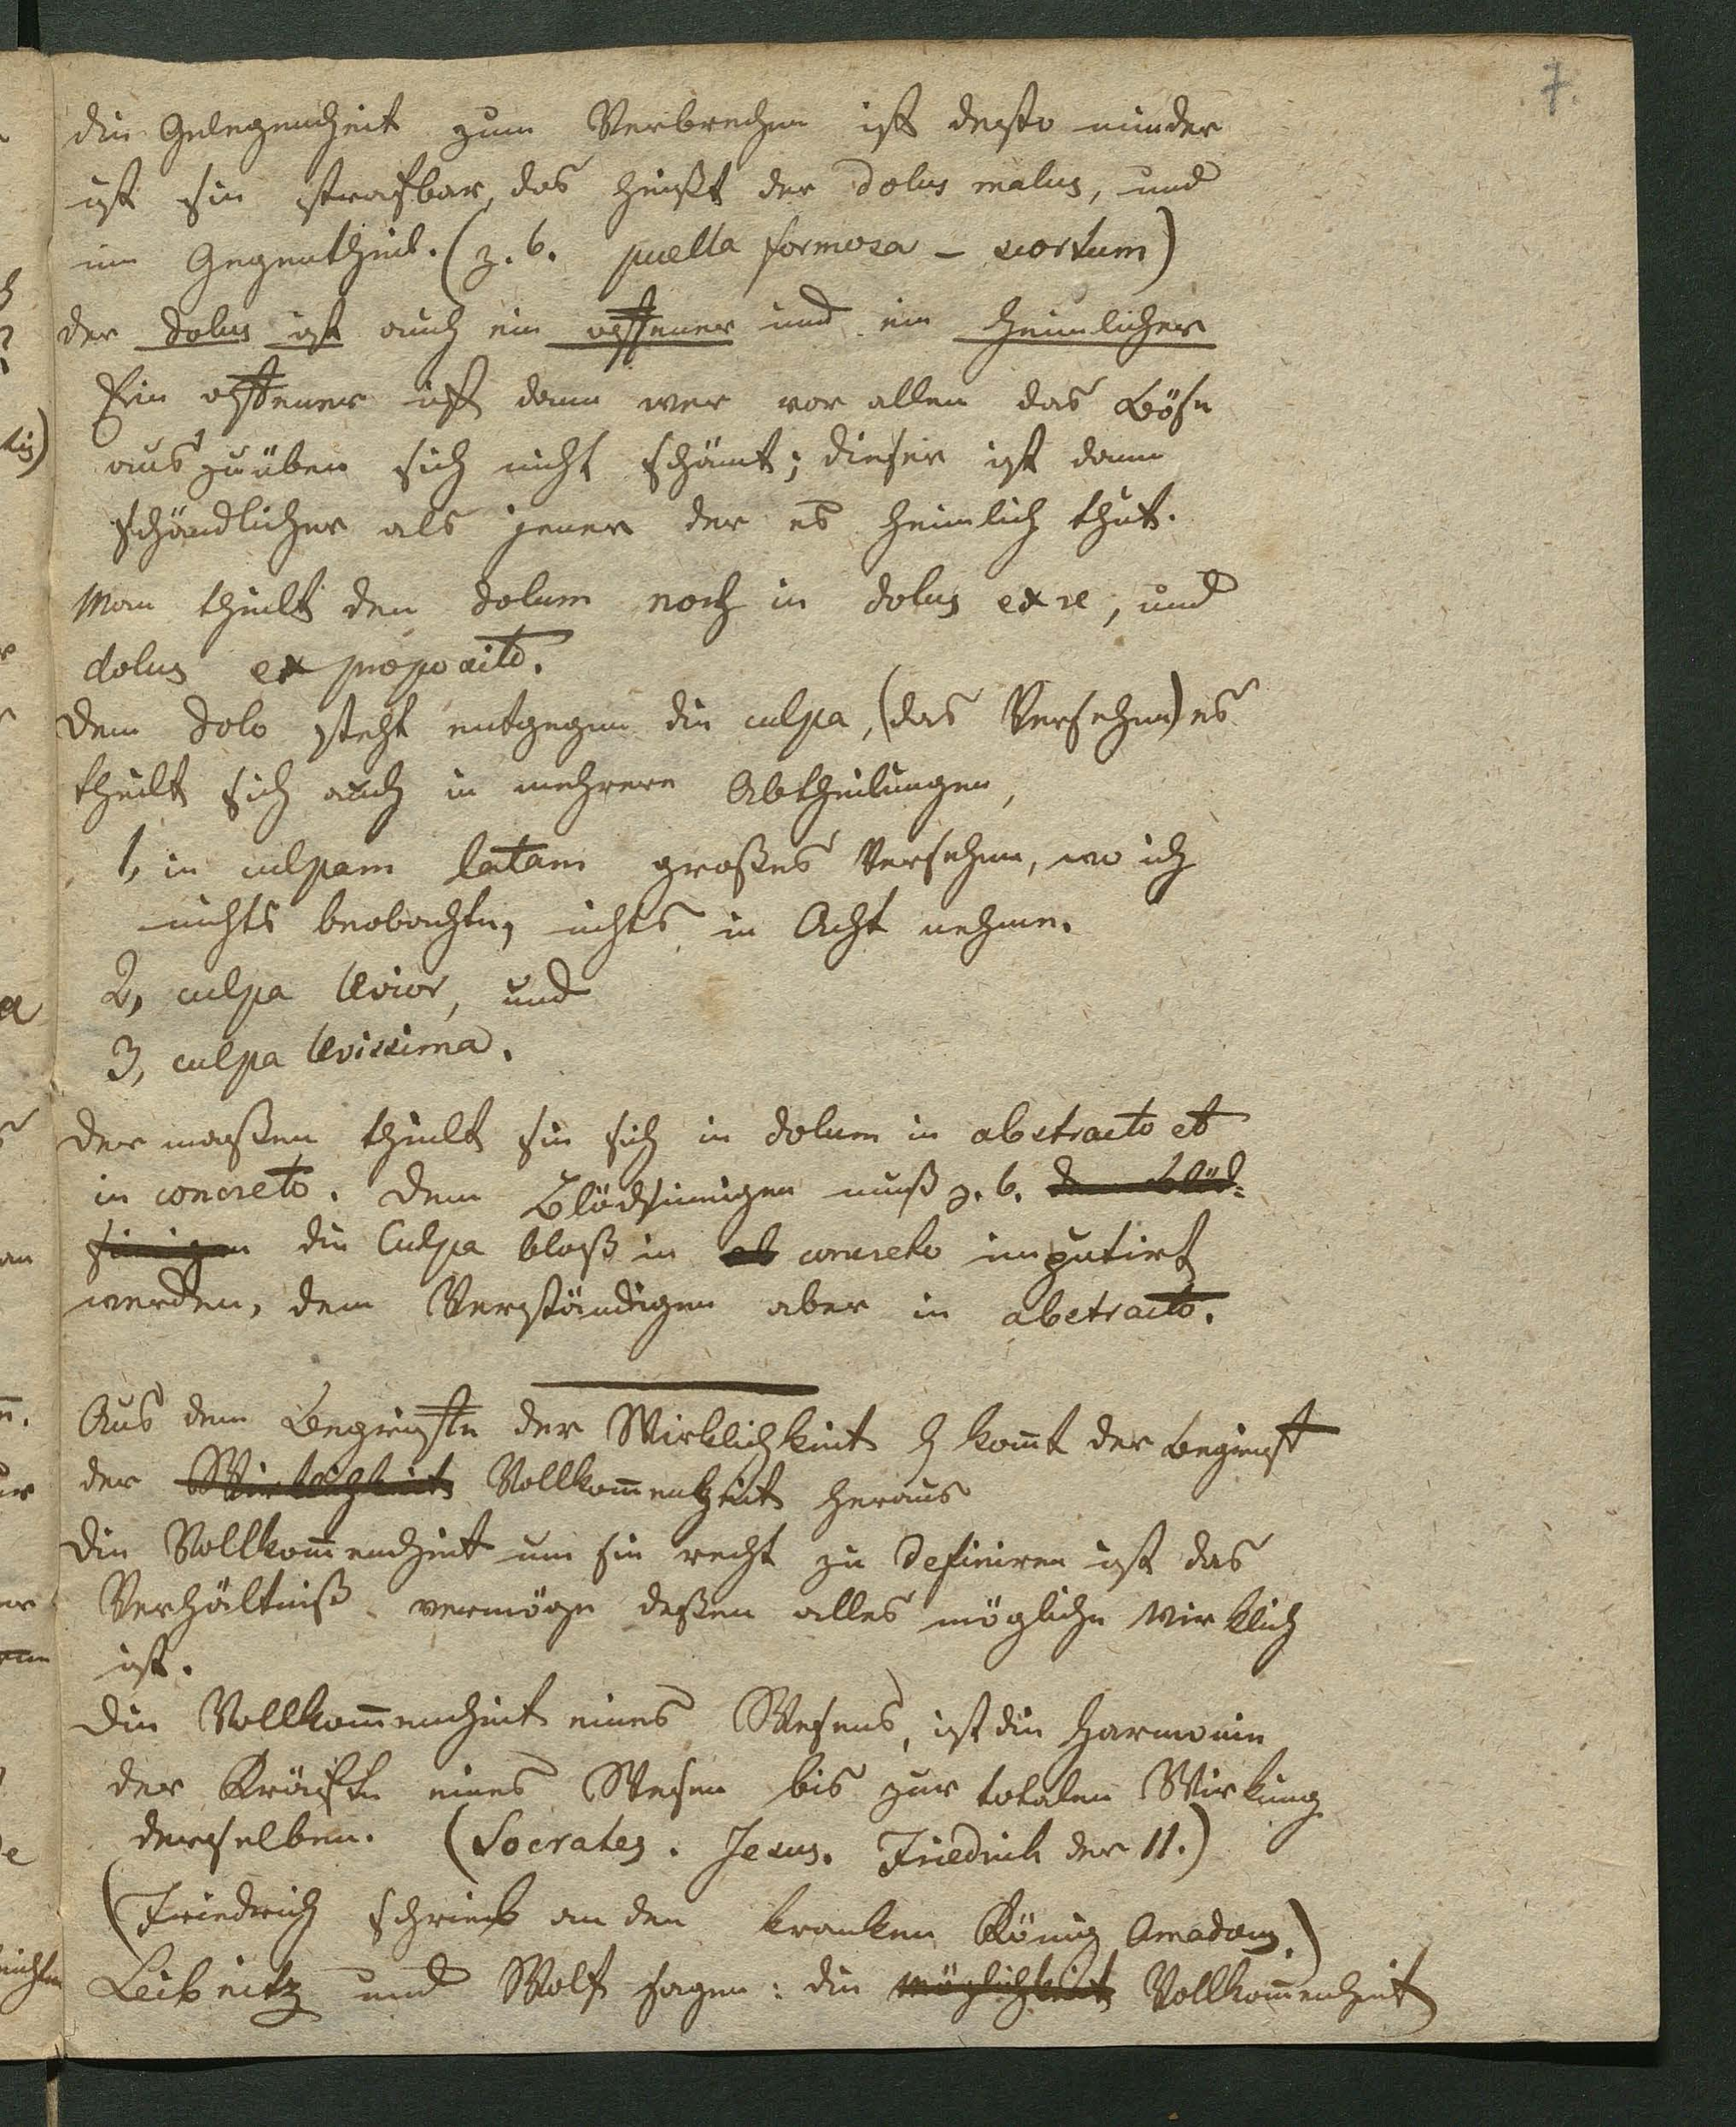 7.
die Gelegenheit zum Verbrechen ist desto minder
ist sie strafbar, das heißt der dolus malus, und
im Gegentheil. (z. b. puella formosa – scortum)
der dolus ist auch ein offener und ein heimlicher
Ein offener ist dann wer vor allen das Böse
auszuüben sich nicht schämt; dieser ist dann
schändlicher als jener der es heimlich thut.
Man theilt den dolum noch in dolus ex re, und
dolus ex proposito.
Dem dolo steht entgegen die culpa, (das Versehen) es
theilt sich auch in mehrere Abtheilungen,
1, in culpam latam großes Versehen, wo ich
nichts beobachte, nichts in Acht nehme.
2, culpa levior, und
3, culpa levissima.
Der maßen theilt sie sich in dolum in abstracto et
in concreto. Dem Blödsinnigen muß z. b. dem Blöd-
sinnigen die Culpa bloß in ab concreto imputirt
werden, dem Verständigen aber in abstracto.
Aus dem Begriffe der Wirklichkeit kommt der Begriff
der Wirklichkeit Vollkom̄enheit heraus
Die Vollkom̄enheit um sie recht zu definiren ist das
Verhältniß vermöge deßen alles mögliche wirklich
ist.
Die Vollkom̄enheit eines Wesens, ist die Harmonie
der Kräfte eines Wesen bis zur totalen Wirkung
derselben. (Socrates. Jesus. Friedrich der II.)
(Friedrich schrieb an den kranken König Amadous.)
Leibnitz und Wolf sagen: die Möglichkeit Vollkom̄enheit